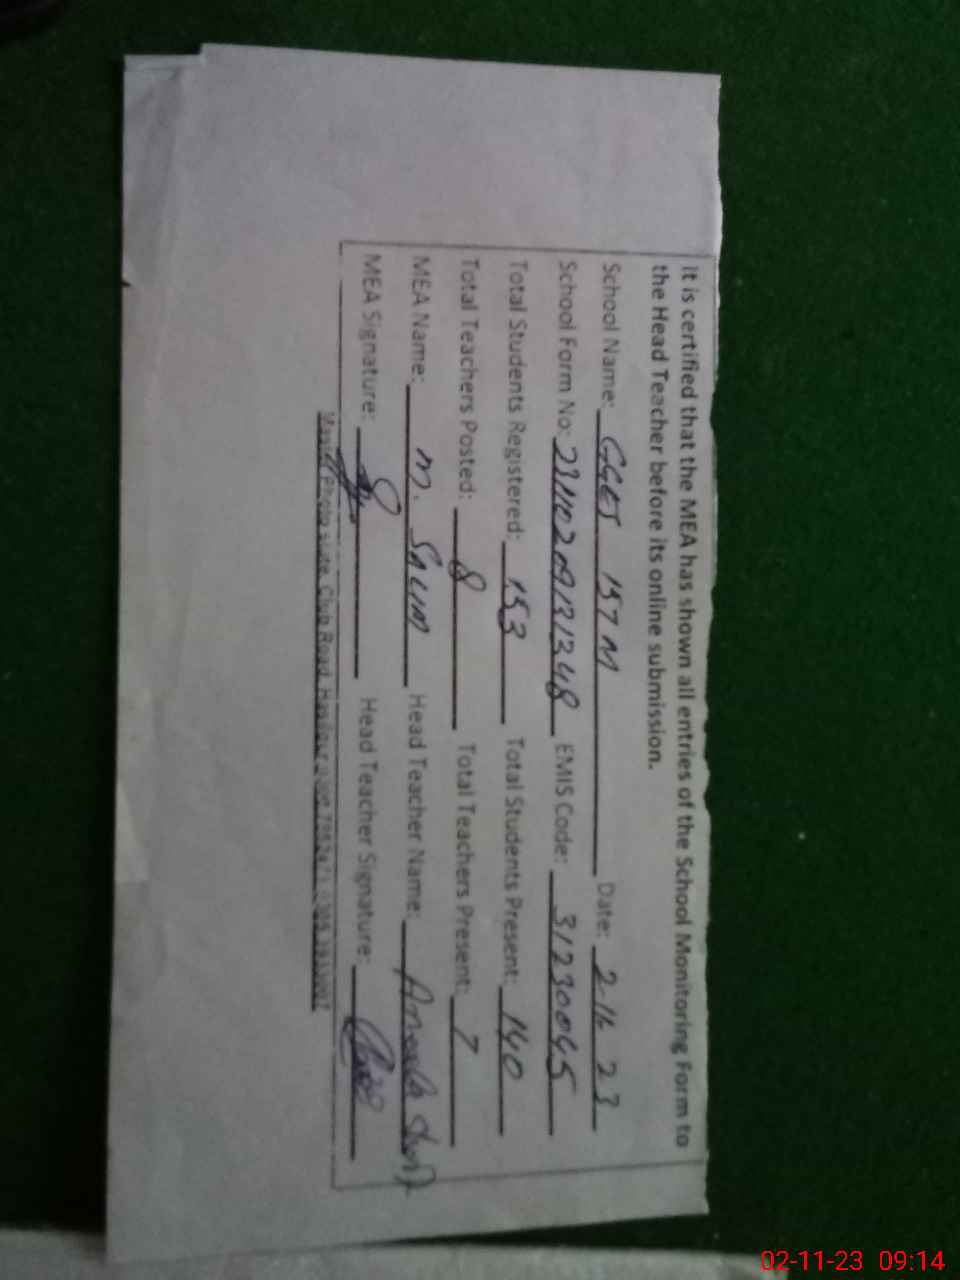 It is certified that the MEA has shown all entries of the School Monitoring Form to
the Head Teacher before its online submission.
School Name: GGES 157 M Date: 2-11-23
School Form No: 23110209131348 EMIS Code: 31230045
Total Students Registered: 153 Total Students Present: 140
Total Teachers Posted: 8 Total Teachers Present: 7
MEA Name: M. Salim Head Teacher Name:
MEA Signature: Head Teacher Signature:
Photo state Club Road
02-11-23 09:14